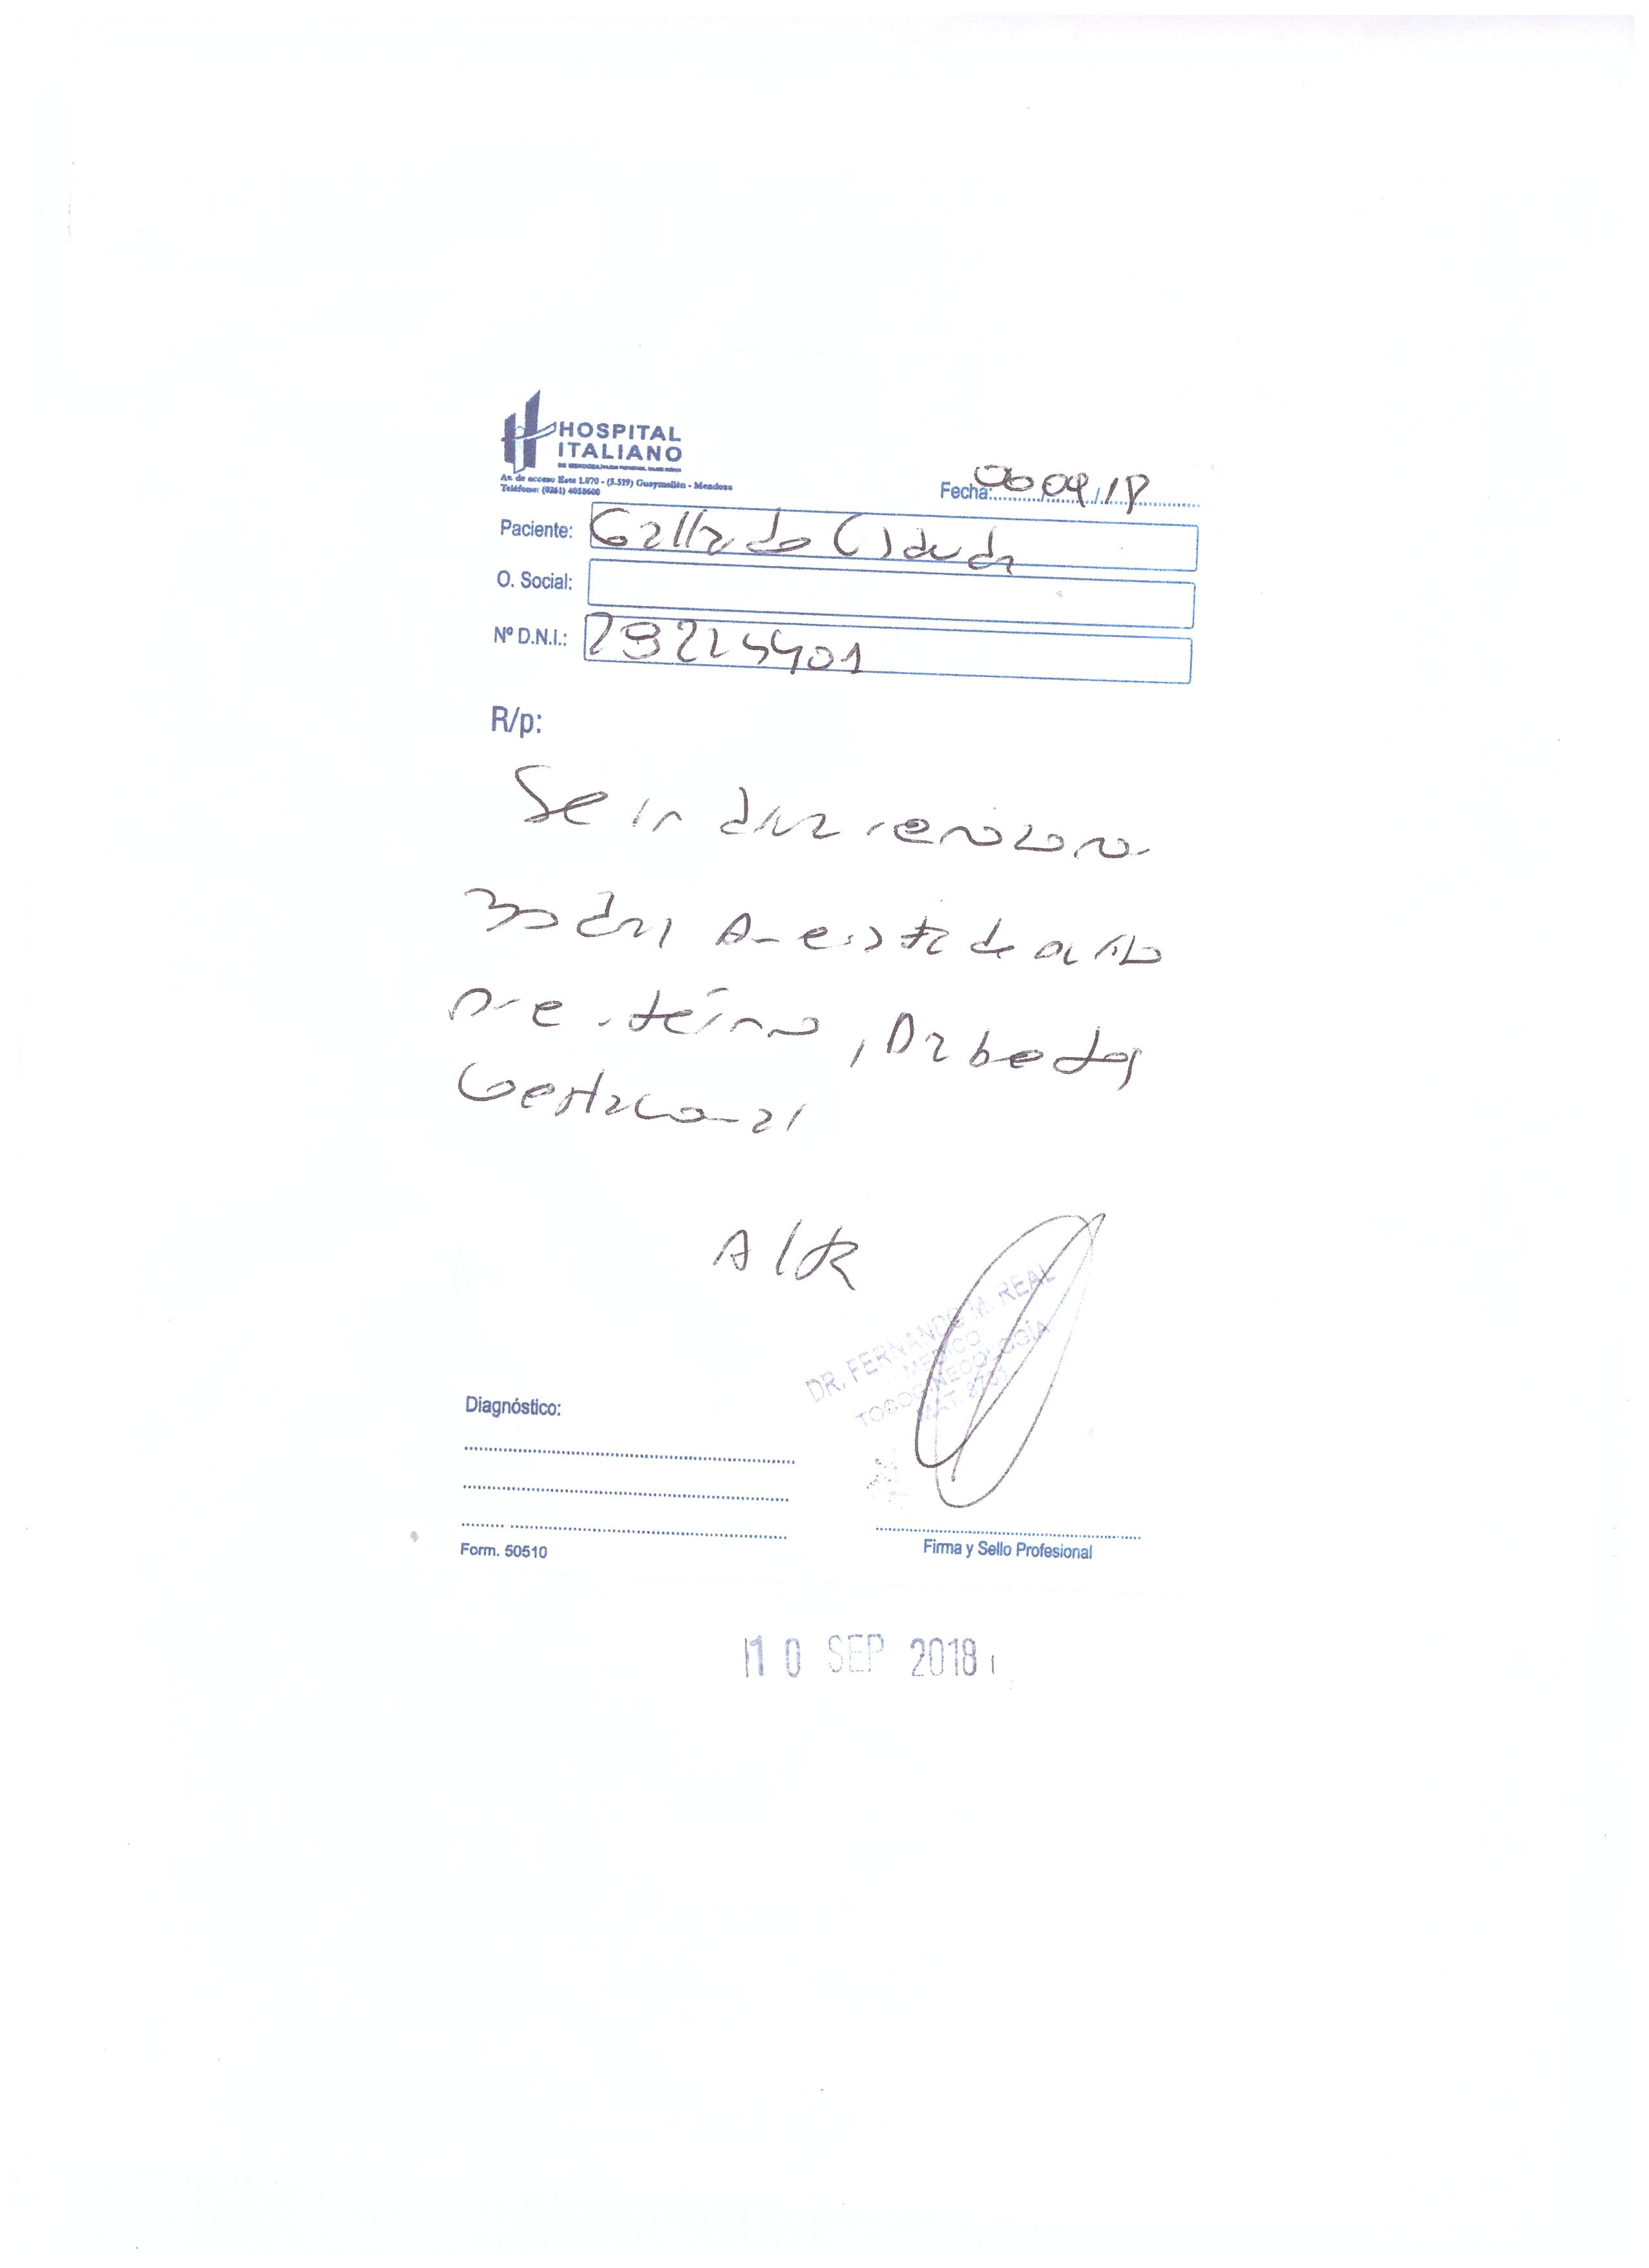 HOSPITAL
ITALIANO
Av. de acceso Este 1.070 - (5.519) Guaymallén - Mendoza
Teléfono: (0261) 4058600
Fecha: 06/09/18
Paciente: Gallardo Claudia
O. Social:
Nº D.N.I.: 29225401
R/p:
Se indica reposo
30 días
pre-término, Diabetes
Gestacional
Alta
DR. FERNANDO M. REAL
MÉDICO
TOCOGINECOLOGÍA
MAT.
Diagnóstico:
Form. 50510
Firma y Sello Profesional
10 SEP 2018